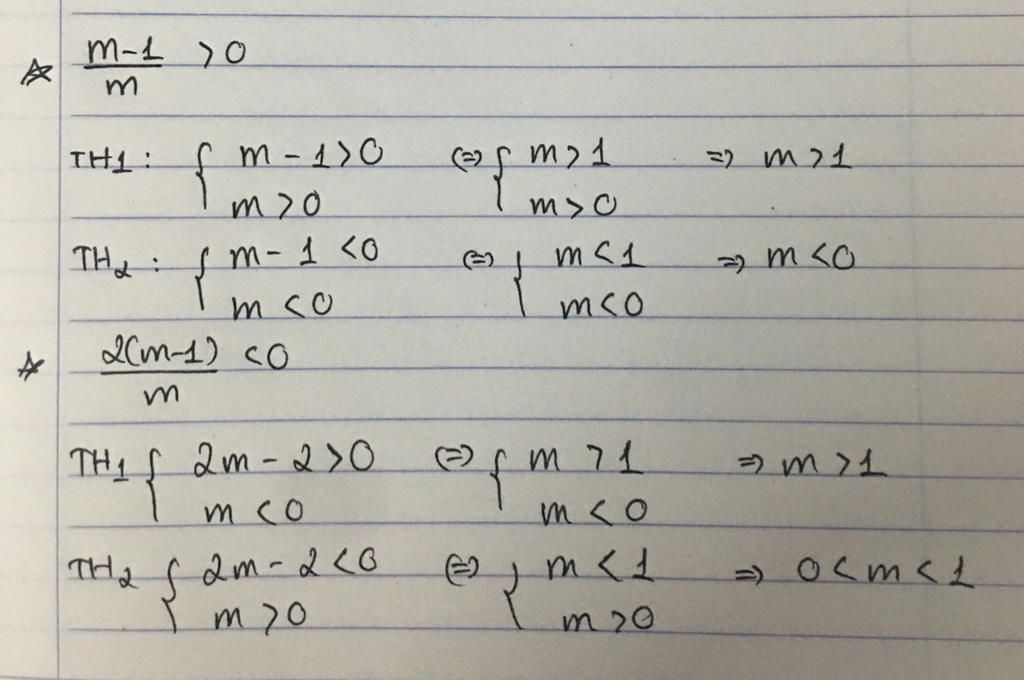 ☆ m-1/m > 0
TH1: { m - 1 > 0 (=) { m > 1 => m > 1
m > 0 m > 0
TH2: { m - 1 < 0 (=) { m < 1 => m < 0
m < 0 m < 0
☆ 2(m-1)/m < 0
TH1 { 2m - 2 > 0 (=) { m > 1 => m > 1
m < 0 m < 0
TH2 { 2m - 2 < 0 (=) { m < 1 => 0 < m < 1
m > 0 m > 0